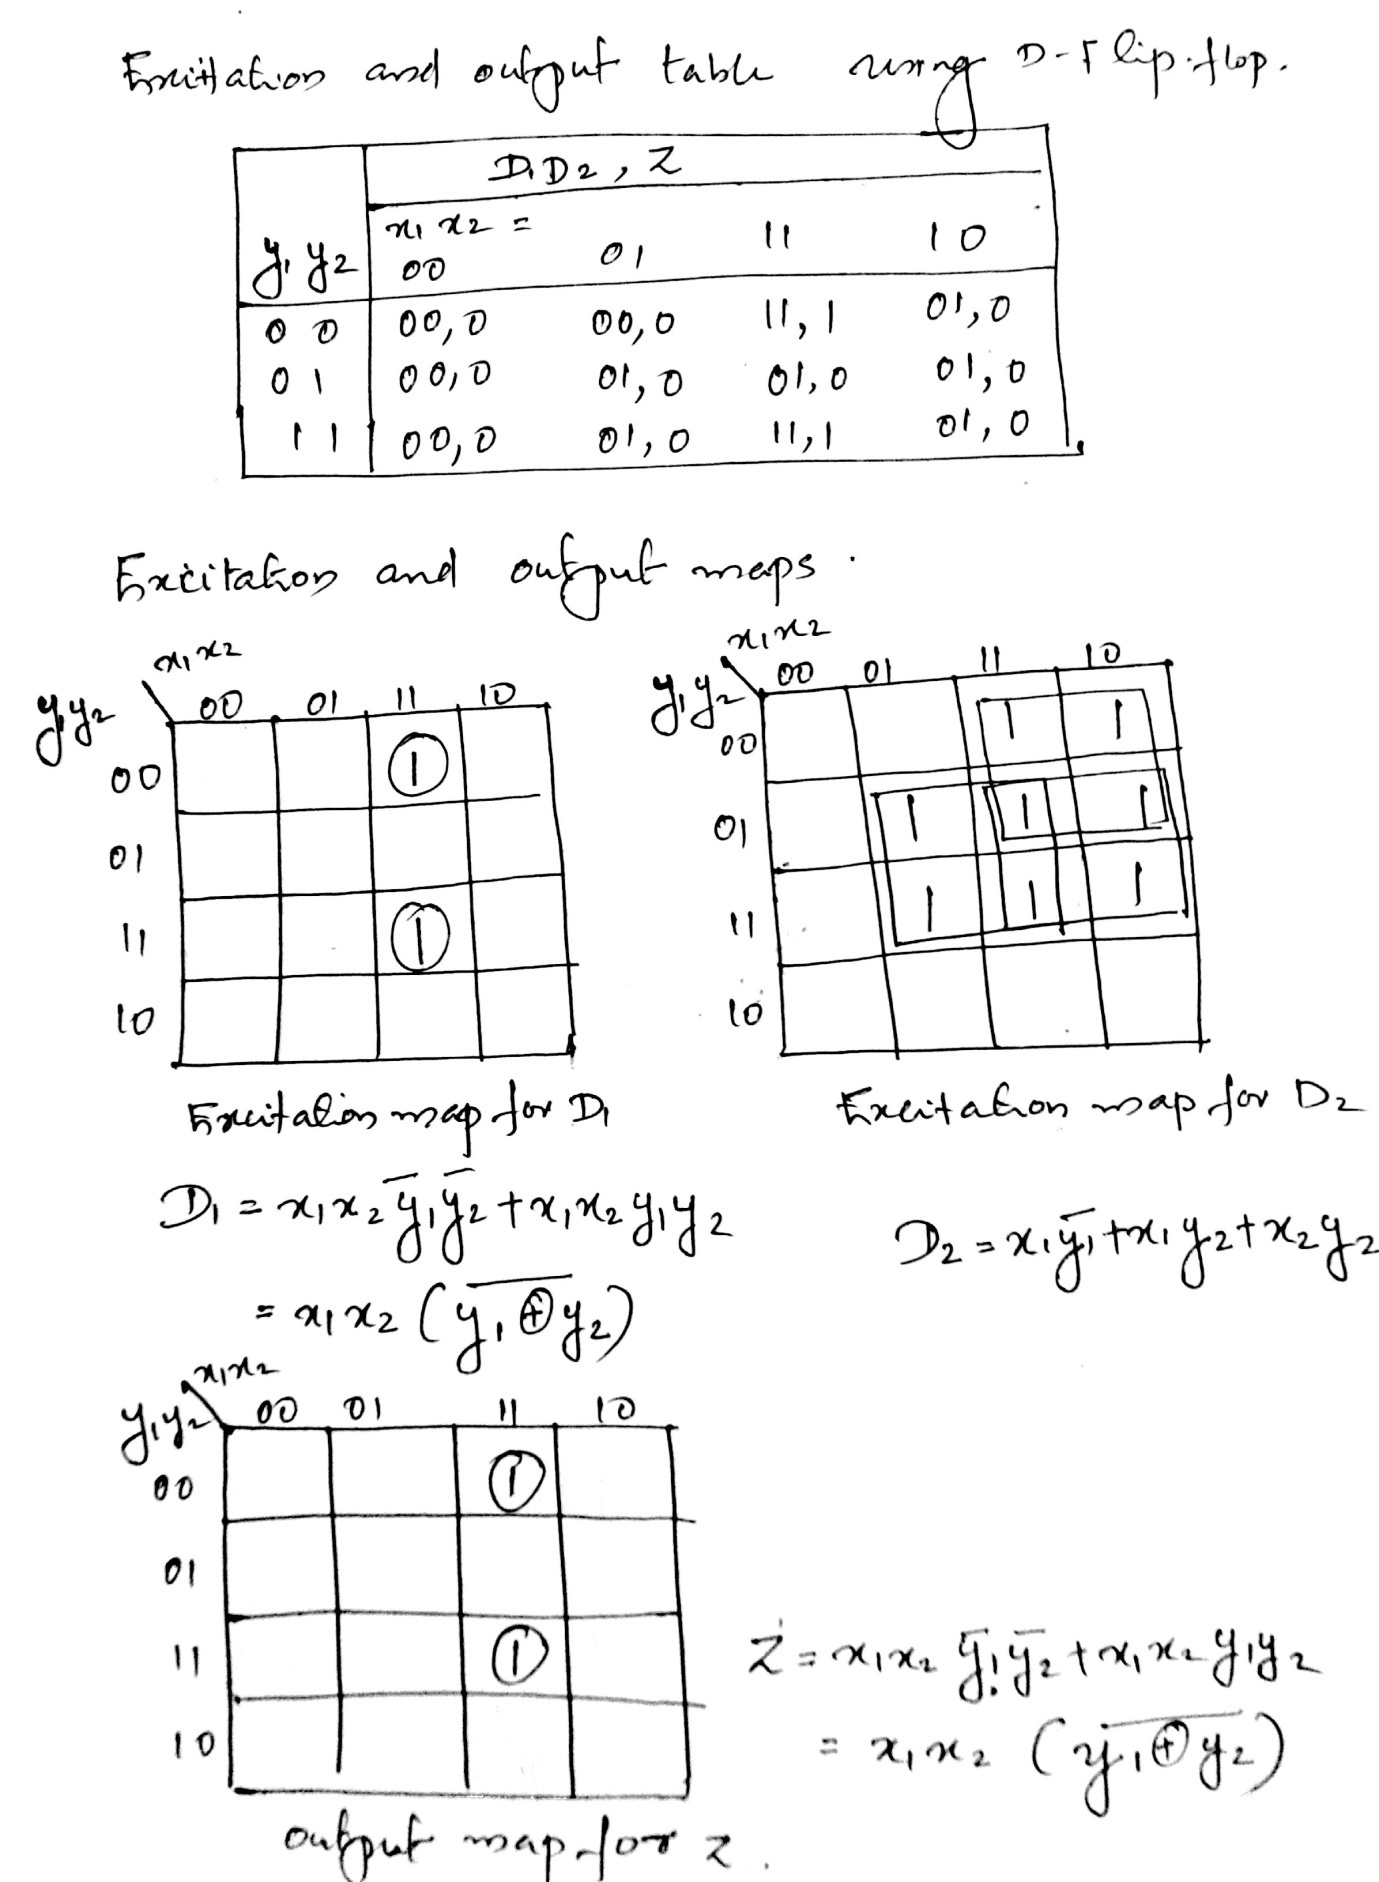 Excitation and output table using D-Flip-flop.
D₁D₂, Z
x₁x₂ =
y₁y₂ 00 01 11 10
00 00,0 00,0 11,1 01,0
01 00,0 01,0 01,0 01,0
11 00,0 01,0 11,1 01,0
Excitation and output maps.
x₁x₂
y₁y₂ 00 01 11 10
00 1
01
11 1
10
Excitation map for D₁
x₁x₂
y₁y₂ 00 01 11 10
00 1 1
01 1 1 1
11 1 1 1
10
Excitation map for D₂
D₁ = x₁x₂ȳ₁ȳ₂ + x₁x₂y₁y₂
= x₁x₂ (y₁⊕y₂)̅
D₂ = x₁ȳ₁ + x₁y₂ + x₂y₂
x₁x₂
y₁y₂ 00 01 11 10
00 1
01
11 1
10
output map for z.
Z = x₁x₂ ȳ₁ȳ₂ + x₁x₂ y₁y₂
= x₁x₂ (y₁⊕y₂)̅